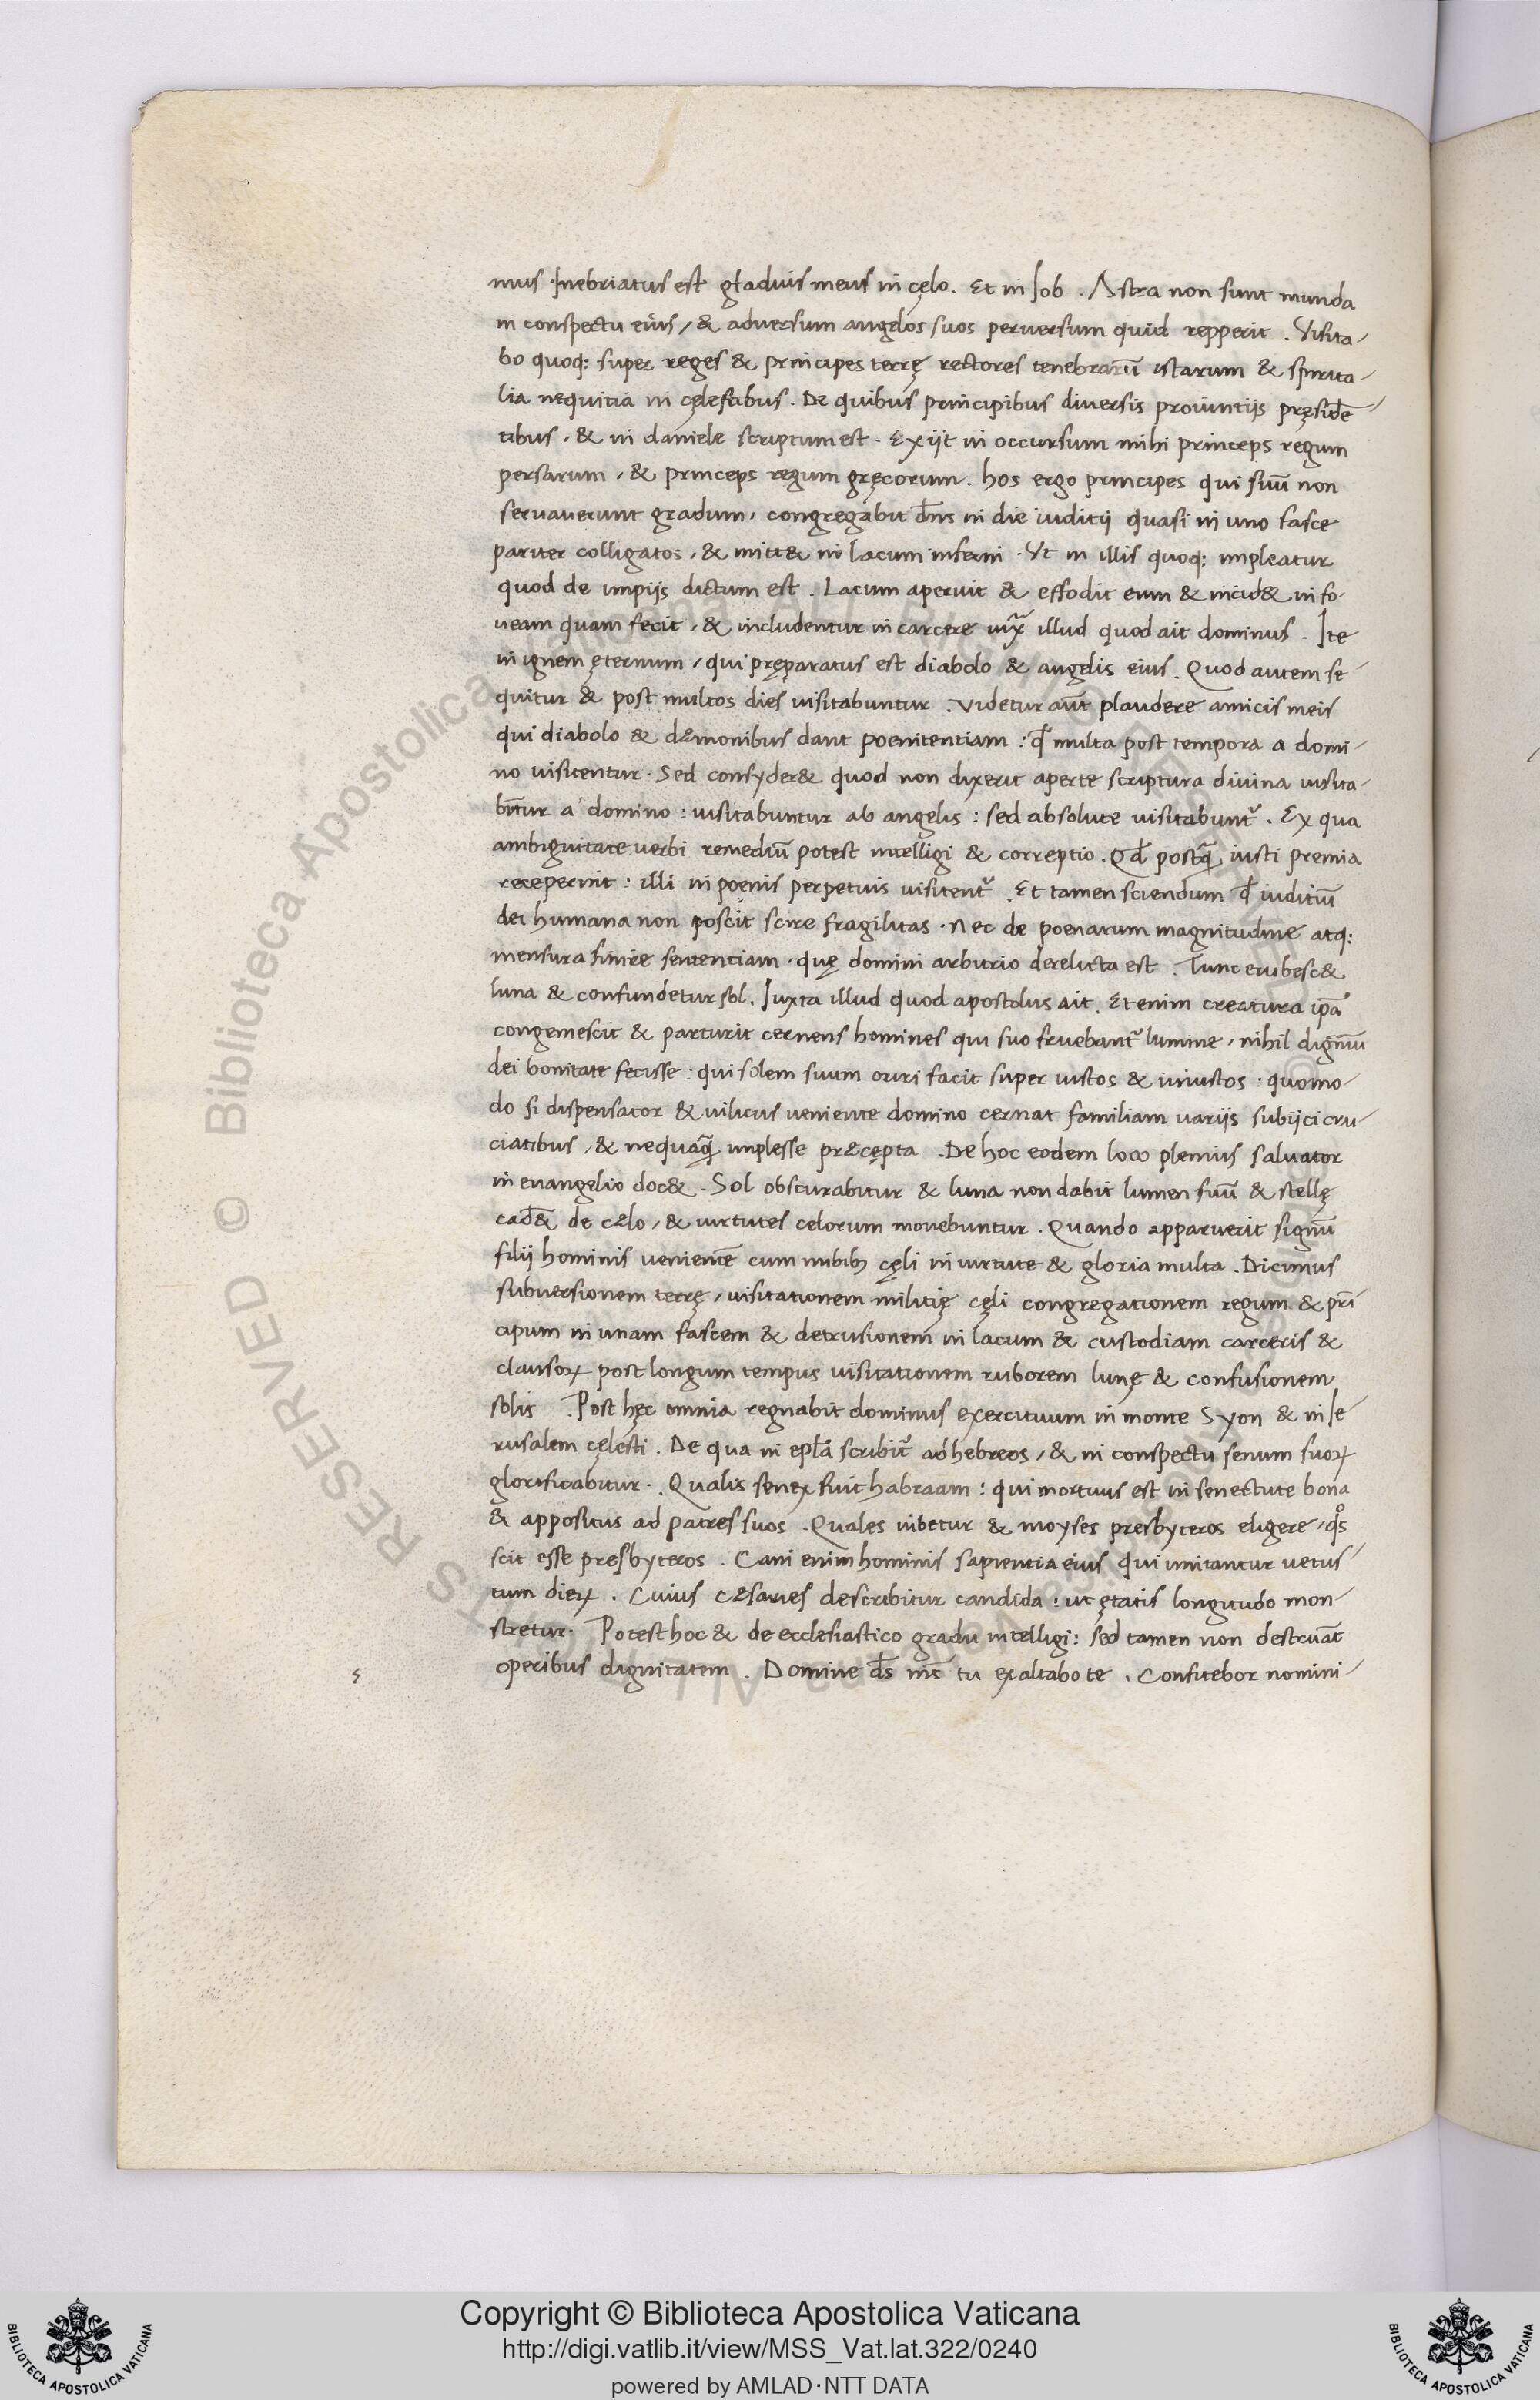 mus. Inebriatus est gladius meus in cęlo. Et in Iob. Astra non sunt munda
in conspectu eius, & aduersum angelos suos peruersum quid repperit. Visita-
bo quoq: super reges & principes terrę rectores tenebrarū istarum & spirita-
lia nequitia in cęlestibus. De quibus principibus diuersis prouintijs pręsidē-
tibus, & in daniele scriptum est. Exijt in occursum mihi princeps regum
persarum, & princeps regum gręcorum. hos ergo principes qui suū non
seruauerunt gradum, congregabit dn̄s in die iuditij quasi in uno fasce
pariter colligatos, & mitt& in lacum inferni. Vt in illis quoq: impleatur
quod de impijs dictum est. Lacum aperuit & effodit eum & incid& in fo-
ueam quam fecit, & includentur in carcere iuxᷓ illud quod ait dominus. Ite
in ignem ęternum, qui pręparatus est diabolo & angelis eius. Quod autem se-
quitur & post multos dies uisitabuntur. Videtur aūt plaudere amicis meis
qui diabolo & dæmonibus dant poenitentiam: qđ multa post tempora a domi-
no uisitentur. Sed consyder& quod non dixerit aperte scriptura diuina uisita-
būtur a domino: uisitabuntur ab angelis: sed absolute uisitabunt᷑. Ex qua
ambiguitate uerbi remediū potest intelligi & correptio. Qđ postꝙ̄ iusti premia
receperint: illi in poenis perpetuis uisitent᷑. Et tamen sciendum qđ iuditiū
dei humana non poscit scire fragilitas. Nec de poenarum magnitudine atq:
mensura finire sententiam, quę domini arbitrio derelicta est. Tunc erubesc&
luna & confundetur sol. Iuxta illud quod apostolus ait. Et enim creatura ip̄a
congemescit & parturit cernens homines qui suo fruebant᷑ lumine, nihil dignū
dei bonitate fecisse: qui solem suum oriri facit super iustos & iniustos: quomo-
do si dispensator & uilicus ueniente domino cernat familiam uariis subijci cru-
ciatibus, & nequaꝙ̄ implesse præcępta. De hoc eodem loco plenius saluator
in euangelio doc&. Sol obscurabitur & luna non dabit lumen suū & stellę
cad̄& de cælo, & uirtutes celorum mouebuntur. Quando apparuerit signū
filij hominis uenientē cum nubibꝫ cęli in uirtute & gloria multa. Dicimus
subuersionem terrę, uisitationem militię cęli congregationem regum & prī
cipum in unam fascem & detrusionem in lacum & custodiam carceris &
clausoꝝ post longum tempus uisitationem ruborem lunę & confusionem
solis. Post hęc omnia regnabit dominus exercituum in monte Syon & in Ie-
rusalem cęlesti. De qua in epl̄a scribit᷑ ad hebreos, & in conspectu senum suoꝝ
glorificabitur. Qualis senex fuit habraam: qui mortuus est in senectute bona
& appositus ad patres suos. Quales iubetur & moyses presbyteros eligere, qͦs
scit esse presbyteros. Cani enim hominis sapientia eius qui imitantur uetus-
tum dieꝝ. Cuius cæsaries describitur candida: ut ętatis longitudo mon-
stretur. Potest hoc & de ecclesiastico gradu intelligi: sed tamen non destruāt
operibus dignitatem. Domine d̄s m̄s tu exaltabo te. Confitebor nomini-
Copyright © Biblioteca Apostolica Vaticana
http://digi.vatlib.it/view/MSS_Vat.lat.322/0240
powered by AMLAD·NTT DATA
BIBLIOTECA APOSTOLICA VATICANA
BIBLIOTECA APOSTOLICA VATICANA